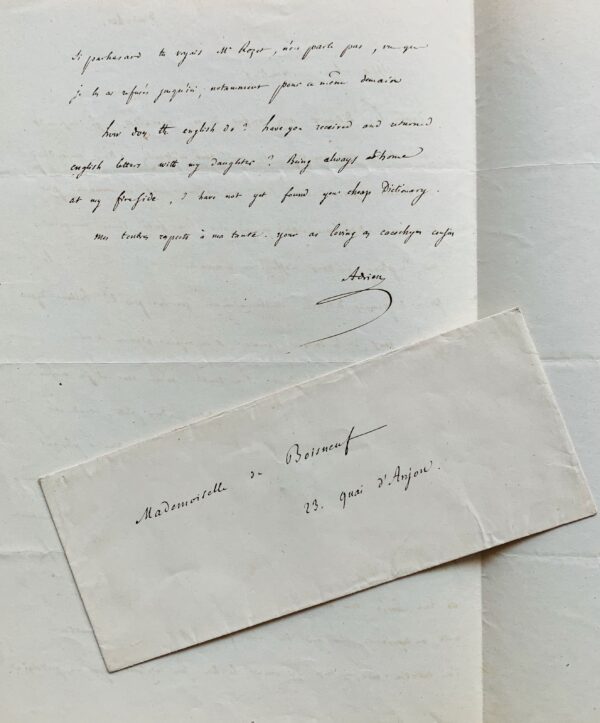 Si par hasard tu voyais Mr Roget, n'en parle pas, vu que
je l'ai refusé jusqu'ici, notamment pour ce même demain
how doy the english do? have you received and returned
english letters with my daughter? Being always at home
at my fireside, I have not yet found your cheap Dictionary.
mes tendres respects à ma tante. your as loving as cacochyme cousin
Adrien
Mademoiselle de Boisneuf
23. quai d'Anjou.